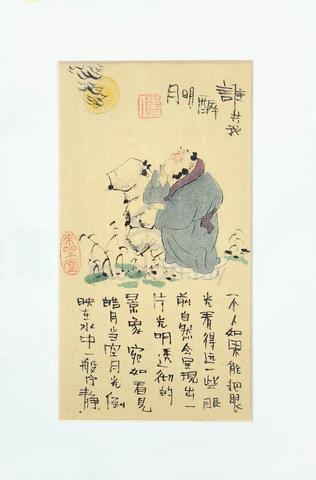 誰共我
醉
明
月
一个人如果能把眼
光看得远一些眼
前自然会呈现出一
片光明透彻的
景象宛如看见
皓月当空月光倒
映在水中一般宁静